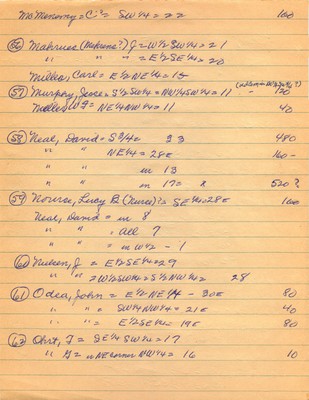 McMenomy = C. = SW 1/4 = 22 160
(56) Mahruse (Mehruse?) J = W 1/2 SW 1/4 = 21
" " = E 1/2 SE 1/4 = 20
Miller, Carl = E 1/2 NE 1/4 = 15
(57) Murphy, Jesse = S 1/2 SW 1/4 = NW 1/4 SW 1/4 = 11 - 120
NE 1/4 NW 1/4 = 11 40
(58) Neal, David = S 3/4 = 23 480
" " NE 1/4 = 28E 160 -
" " in 13
" " in 17 = 520 ?
(59) Nourse, Lucy B. (Nurse)? = SE 1/4 = 28E 160
Neal, David = in 8
" " = All 7
" " = in W 1/2 - 1
(60) J = E 1/2 SE 1/4 = 29
" " = W 1/2 SW 1/4 = S 1/2 NW 1/4 = 28
(61) Odea, John = E 1/2 NE 1/4 - 30E 80
" " SW 1/4 NW 1/4 = 21E 40
" " = E 1/2 SE 1/4 = 19E 80
(62) Ohrt, F = SE 1/4 SW 1/4 = 17
" G = in NE corner NW 1/4 = 16 10